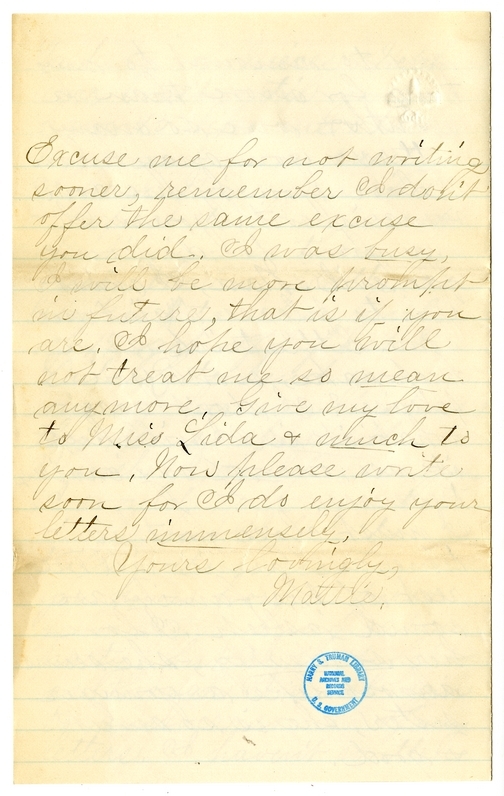 Excuse me for not writing
sooner, remember I don't
offer the same excuse
you did. I was busy.
I will be more prompt
in future, that is if you
are. I hope you will
not treat me so mean
anymore. Give my love
to Miss Lida & much to
you. Now please write
soon for I do enjoy your
letters immensely.
Yours lovingly,
Mattie.
HARRY S. TRUMAN LIBRARY
NATIONAL
ARCHIVES AND
RECORDS
SERVICE
U. S. GOVERNMENT